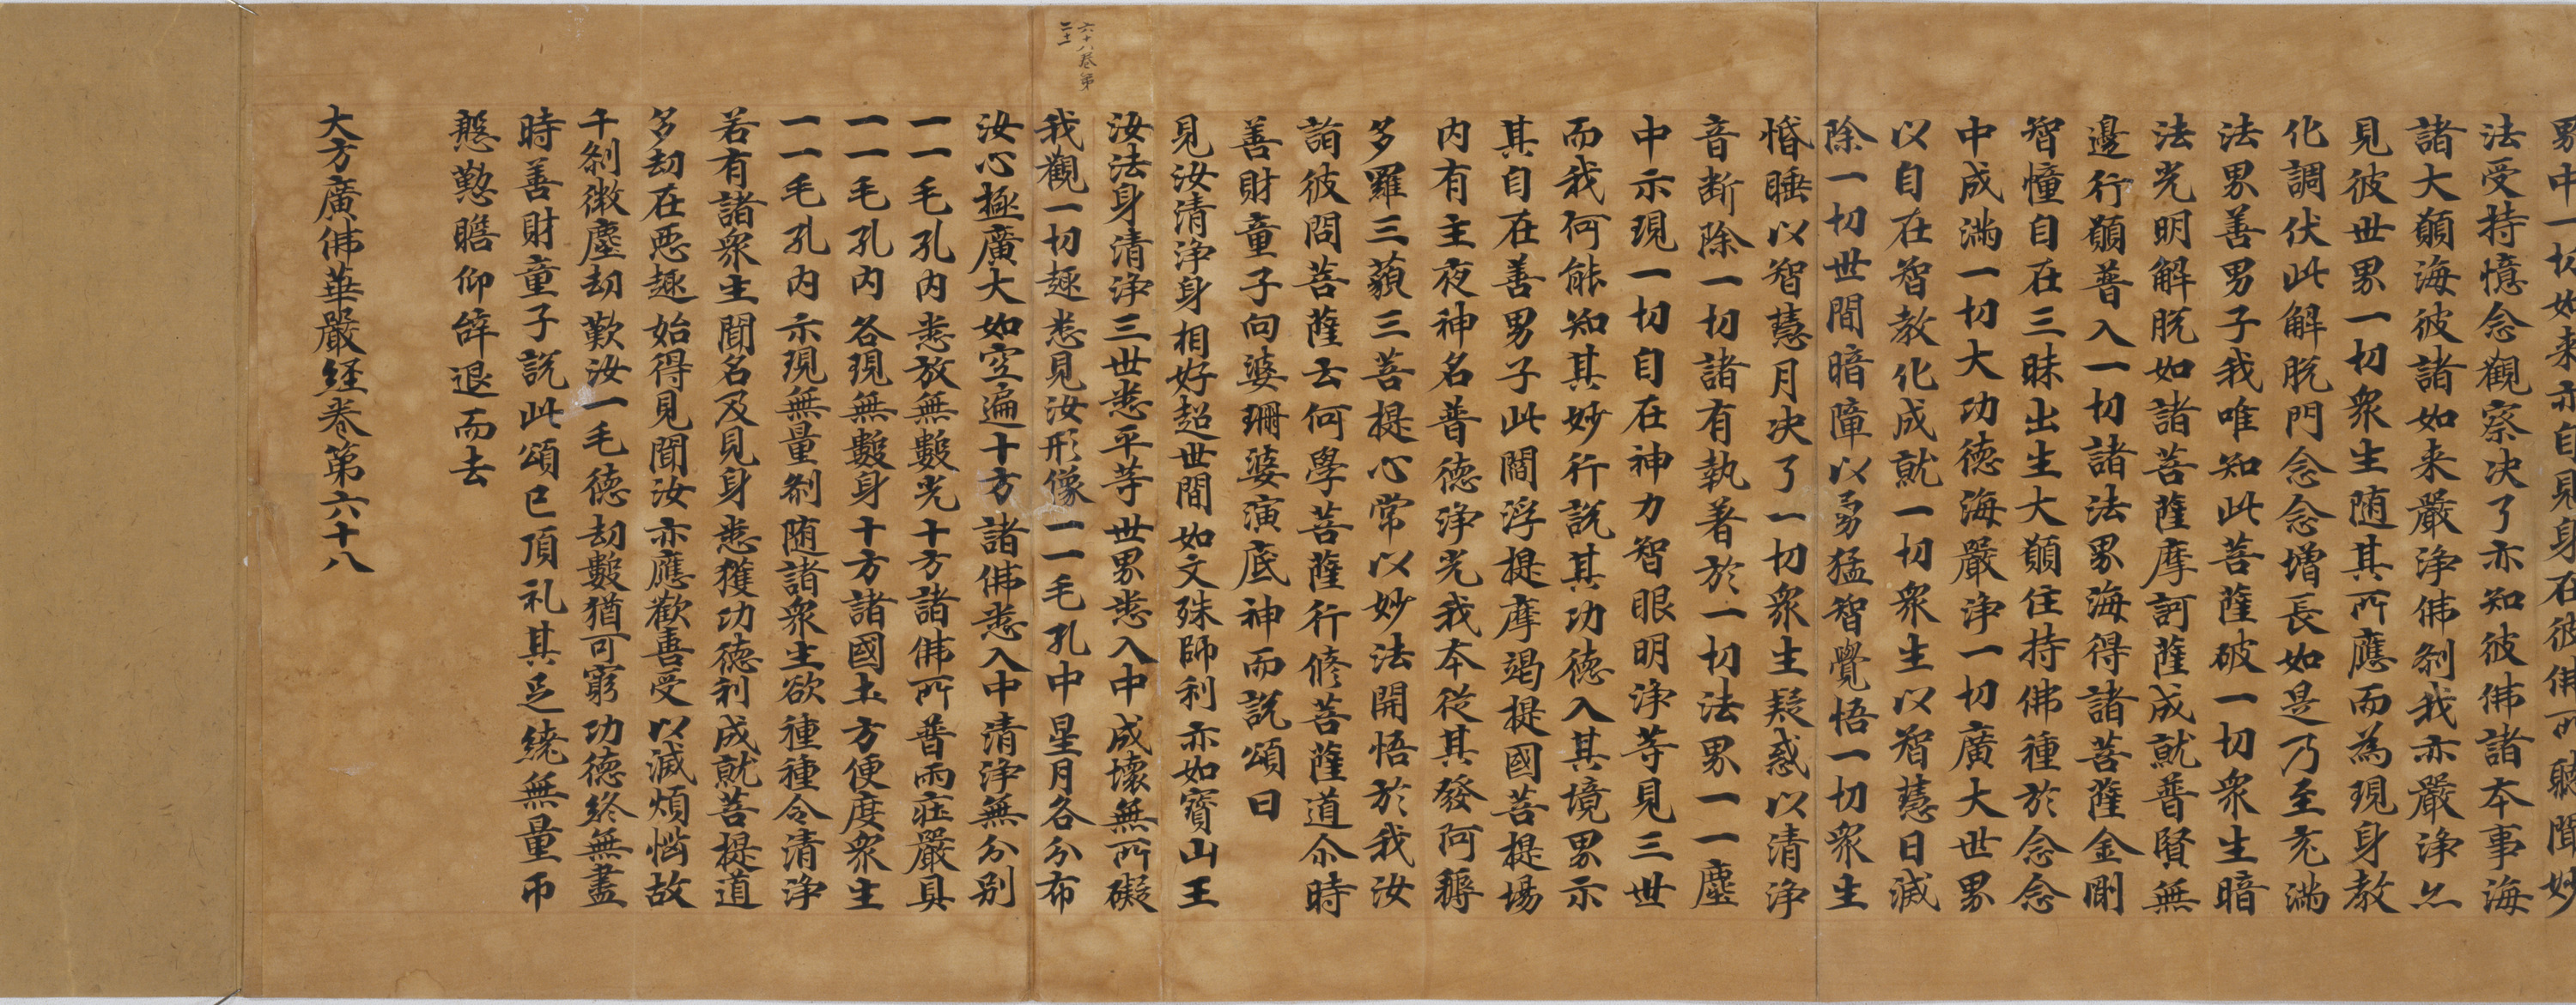 界中一切如来亦自見身在彼佛所聽聞妙
法受持憶念觀察决了亦知彼佛諸夲事海
諸大願海彼諸如来嚴淨佛剎我亦嚴淨亦
見彼世界一切衆生随其所應而為現身教
化調伏此解脫門念念增長如是乃至充滿
法界善男子我唯知此菩薩破一切衆生暗
法光明解脫如諸菩薩摩訶薩成就普賢無
邊行願普入一切諸法界海得諸菩薩金剛
智幢自在三昧出生大願住持佛種於念念
中成滿一切大功德海嚴淨一切廣大世界
以自在智教化成就一切衆生以智慧日滅
除一切世間暗障以勇猛智覺悟一切衆生
惛睡以智慧月决了一切衆生疑惑以清淨
音斷除一切諸有執著於一切法界一一塵
中示現一切自在神力智眼明淨等見三世
而我何能知其妙行說其功德入其境界示
其自在善男子此閻浮提摩竭提國菩提場
内有主夜神名普德淨光我夲從其發阿耨
多羅三藐三菩提心常以妙法開悟於我汝
詣彼問菩薩云何學菩薩行修菩薩道尒時
善財童子向婆珊婆演底神而說頌曰
見汝清淨身 相好超世間 如文殊師利 亦如寶山王
汝法身清淨 三世悉平等 世界悉入中 成壞無所礙
六十八卷第
二十一
我觀一切趣 悉見汝形像 一一毛孔中 星月各分布
汝心極廣大 如空遍十方 諸佛悉入中 清淨無分別
一一毛孔内 悉放無數光 十方諸佛所 普雨莊嚴具
一一毛孔内 各現無數身 十方諸國土 方便度衆生
一一毛孔内 示現無量剎 随諸衆生欲 種種令清淨
若有諸衆生 聞名及見身 悉獲功德利 成就菩提道
多劫在惡趣 始得見聞汝 亦應歡喜受 以滅煩惱故
千剎微塵劫 歎汝一毛德 劫數猶可窮 功德終無盡
時善財童子說此頌已頂礼其足繞無量帀
慇懃瞻仰辭退而去
大方廣佛華嚴經卷第六十八